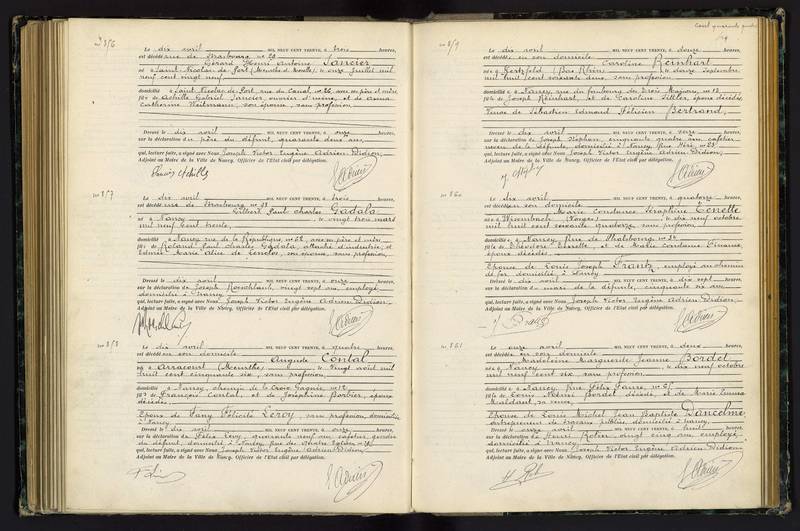 no 816
Le dix avril MIL NEUF CENT TRENTE, à trois heures,
est décédé rue de Strasbourg no 29
Gérard Henri Antoine Jancier
né à Saint Nicolas de Port (Meurthe & Moselle) le onze juillet mil
neuf cent vingt neuf
domicilié à Saint Nicolas de Port, rue du Canal, no 26, avec ses père et mère
fils de Achille Gabriel Jancier, ouvrier d'usine, et de Anna
Catherine Weitmann, son épouse, sans profession
Dressé le dix avril MIL NEUF CENT TRENTE, à onze heures,
sur la déclaration du père du défunt, quarante deux ans,
qui, lecture faite, a signé avec Nous Joseph Victor Eugène Adrien Didion,
Adjoint au Maire de la Ville de Nancy, Officier de l'État civil par délégation.
no 817
Le dix avril MIL NEUF CENT TRENTE, à trois heures,
est décédé rue de Strasbourg
Gilbert Paul Charles Gadala
né à Nancy le vingt trois mars
mil neuf cent trente,
domicilié à Nancy rue de la République, no 62, avec ses père et mère
fils de Roland Paul Charles Gadala, attaché d'industrie, et
Edmée Marie Alice de son épouse, sans profession
Dressé le dix avril MIL NEUF CENT TRENTE, à onze heures,
sur la déclaration de Joseph vingt sept ans, employé
domicilié à Nancy
qui, lecture faite, a signé avec Nous Joseph Victor Eugène Adrien Didion,
Adjoint au Maire de la Ville de Nancy, Officier de l'État civil par délégation.
no 818
Le dix avril MIL NEUF CENT TRENTE, à quatre heures,
est décédé en son domicile
Auguste Contal
né à Arracourt (Meurthe) le vingt août mil
huit cent cinquante six, sans profession
domicilié à Nancy, chemin de la Croix Gagnée, no 12
fils de François Contal, et de Joséphine Barbier, époux
décédés
Époux de Fany Félicité Leroy, sans profession, domiciliée
à Nancy
Dressé le dix avril MIL NEUF CENT TRENTE, à onze heures,
sur la déclaration de Félix quarante neuf ans, cafetier, gendre
du défunt, domicilié à Nancy, Rue des Quatre Églises
qui, lecture faite, a signé avec Nous Joseph Victor Eugène Adrien Didion
Adjoint au Maire de la Ville de Nancy, Officier de l'État civil par délégation.
no 819
Le dix avril MIL NEUF CENT TRENTE, à douze heures,
est décédée en son domicile
Caroline Reinhart
née à Kertzfeld (Bas Rhin) le douze septembre
mil huit cent soixante deux, sans profession
domiciliée à Nancy, rue du faubourg des Trois Maisons, no 12
fille de Joseph Reinhart, et de Caroline époux décédés
Veuve de Sébastien Edmond Félicien Bertrand,
Dressé le dix avril MIL NEUF CENT TRENTE, à seize heures,
sur la déclaration de Joseph cinquante quatre ans,
neveu de la défunte, domicilié à Nancy
qui, lecture faite, a signé avec Nous Joseph Victor Eugène Adrien Didion,
Adjoint au Maire de la Ville de Nancy, Officier de l'État civil par délégation.
no 820
Le dix avril MIL NEUF CENT TRENTE, à quatorze heures,
est décédée en son domicile
Marie Constance Séraphine Tenette
née à Wisembach (Vosges) le dix neuf octobre
mil huit cent soixante quatorze sans profession
domiciliée à Nancy, Rue de Phalsbourg no
fille de Théodore Tenette, et de Marie
époux décédés
Épouse de Louis Joseph Frantz, employé au chemin
de fer domicilié à Nancy
Dressé le dix avril MIL NEUF CENT TRENTE, à dix sept heures,
sur la déclaration du mari de la défunte, cinquante six ans,
qui, lecture faite, a signé avec Nous Joseph Victor Eugène Adrien Didion,
Adjoint au Maire de la Ville de Nancy, Officier de l'État civil par délégation.
no 821
Le onze avril MIL NEUF CENT TRENTE, à deux heures,
est décédée en son domicile
Madeleine Marguerite Jeanne Bordet
née à Nancy le dix neuf octobre
mil neuf cent six, sans profession
domiciliée à Nancy, Rue Félix Faure, no 25
fille de Louis Bordet décédé, et de Marie
sa veuve
Épouse de Louis Michel Jean Baptiste Dancelme,
entrepreneur de travaux publics, domicilié à Nancy,
Dressé le onze avril MIL NEUF CENT TRENTE, à huit heures,
sur la déclaration de Henri vingt cinq ans, employé,
domicilié à Nancy
qui, lecture faite, a signé avec Nous Joseph Victor Eugène Adrien Didion
Adjoint au Maire de la Ville de Nancy, Officier de l'État civil par délégation.